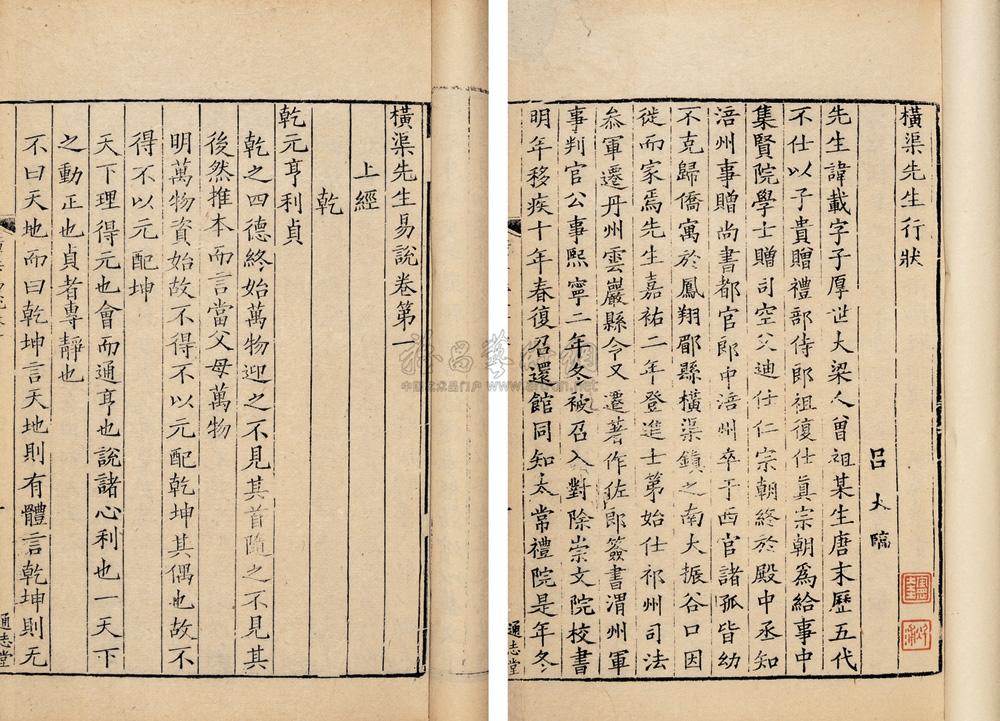 橫渠先生行狀
呂大臨
先生諱載字子厚世大梁人曾祖某生唐末歷五代
不仕以子貴贈禮部侍郎祖復仕眞宗朝爲給事中
集賢院學士贈司空父迪仕仁宗朝終於殿中丞知
涪州事贈尚書都官郎中涪州卒于西官諸孤皆幼
不克歸僑寓於鳳翔郿縣橫渠鎮之南大振谷口因
徙而家焉先生嘉祐二年登進士第始仕祁州司法
叅軍遷丹州雲巖縣令又遷著作佐郎簽書渭州軍
事判官公事熙寧二年冬被召入對除崇文院校書
明年移疾十年春復召還館同知太常禮院是年冬
通志堂
橫渠先生易說卷第一
上經
乾
乾元亨利貞
乾之四德終始萬物迎之不見其首隨之不見其
後然推本而言當父母萬物
明萬物資始故不得不以元配乾坤其偶也故不
得不以元配坤
天下理得元也會而通亨也說諸心利也一天下
之動正也貞者專靜也
不曰天地而曰乾坤言天地則有體言乾坤則无
通志堂